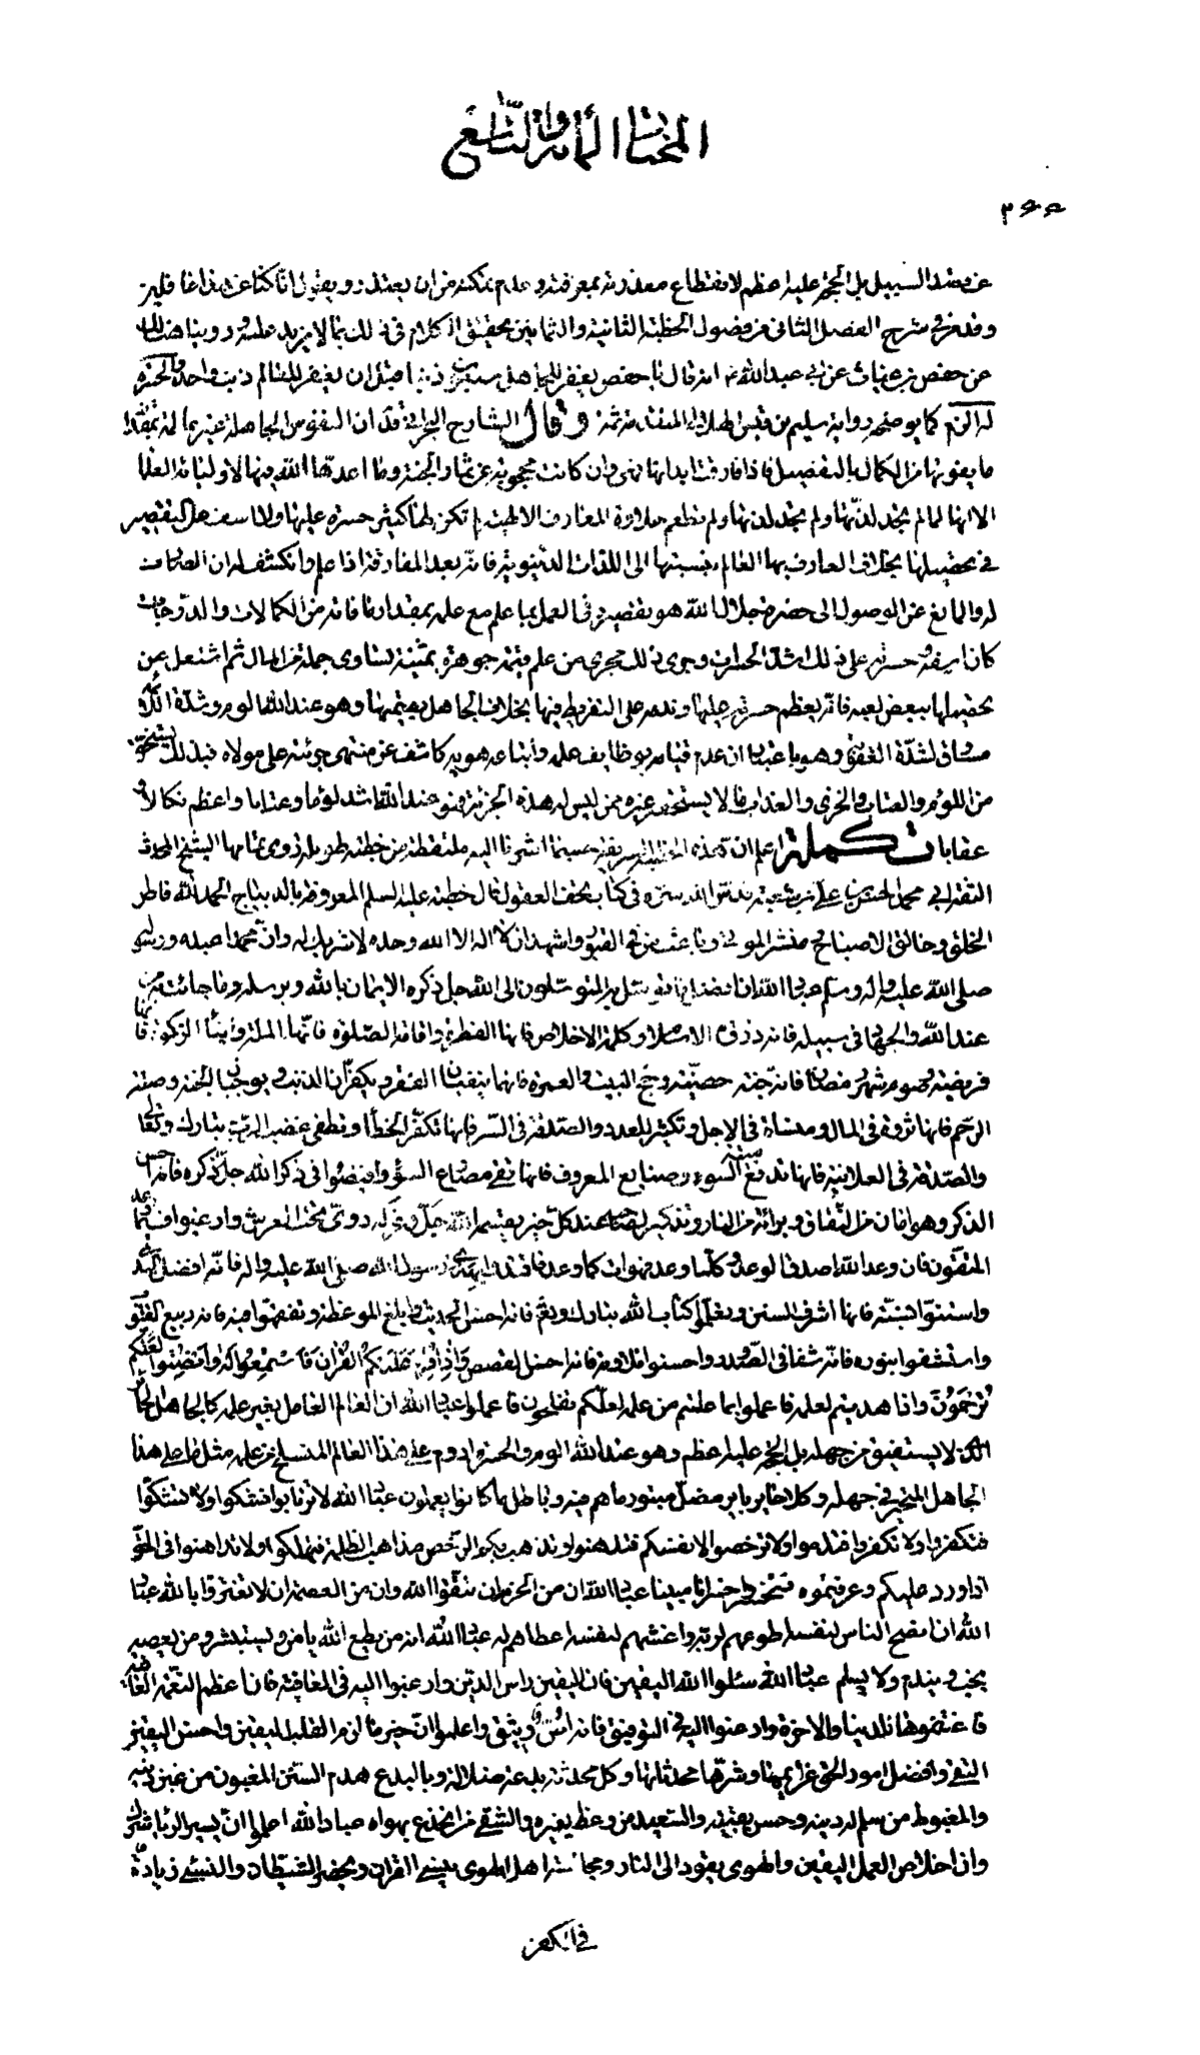 المختار المأة والتاسع
٣٦٥
عن قصد السبيل بل الحجة عليه اعظم لانقطاع معذرته بمعرفته وعدم تمكنه من ان يعتذر ويقول انا كنا عن هذا غافلين
وقد مر في شرح الفصل الثاني من فصول الخطبة الثانية والثمانين تحقيق الكلام في ذلك بما لا مزيد عليه وروينا هنالك
عن حفص بن غياث عن ابي عبد الله ع انه قال يا حفص يغفر للجاهل سبعون ذنبا قبل ان يغفر للعالم ذنب واحد والحسرة
له الزم كما يوضحه رواية سليم بن قيس الهلالي المتقدمة ثمة وقال الشارح البحراني ان النفوس الجاهلة غير عالمة بمقدار
ما يفوتها من الكمال بالتفصيل فاذا فارقت ابدانها فهي وان كانت محجوبة عن ثمار الجنة وما اعد الله فيها لاوليائه العلماء
الا انها لما لم يجد لذتها ولم تطعم حلاوة المعارف الالهية لم تكن لها كثير حسرة عليها ولا اسف على التقصير
في تحصيلها بخلاف العارف بها العالم بنسبتها الى اللذات الدنيوية فانه بعد المفارقة اذا علم وانكشف له ان الصارف
له والمانع عن الوصول الى حضرة جلال الله هو تقصيره في العمل بما علم مع علمه بمقدار ما فاته من الكمالات والدرجات
كان اسفه وحسرته على ذلك اشد الحسرات وجرى ذلك مجرى من علم قيمة جوهرة ثمينة تساوى جملة من المال ثم اشتغل عن
تحصيلها ببعض لعبه فانه يعظم حسرته عليها وندمه على التفريط فيها بخلاف الجاهل بقيمتها وهو عند الله الوم وشدة اللائمة
مساق لشدة الغضب وهو باعتبار ان عدم قيامه بوظايف علمه واتباعه هويه كاشف عن منتهى جرئته على مولاه فبذلك يستحق
من اللوم والعتاب والخزى والعذاب ما لا يستحق غيره ممن ليس له هذه الجرئة فهو عند الله اشد لوما وعتابا واعظم نكالا و
عقابا تكملة اعلم ان هذه الخطبة الشريفة حسبما اشرنا اليه ملتقطة من خطبة طويلة روى تمامها الشيخ المحدث
الثقة ابي محمد الحسن بن علي بن شعبة قدس الله سره في كتاب تحف العقول قال خطبته عليه السلم المعروفة بالديباج الحمد لله فاطر
الخلق وخالق الاصباح ومنشر الموتى وباعث من في القبور واشهد ان لا اله الا الله وحده لا شريك له وان محمدا عبده ورسوله
صلى الله عليه واله وسلم عباد الله ان افضل ما توسل به المتوسلون الى الله جل ذكره الايمان بالله وبرسله وما جائت به من
عند الله والجهاد في سبيله فانه ذروة الاسلام وكلمة الاخلاص فانها الفطرة واقامة الصلوة فانها الملة وايتاء الزكوة فانها
فريضة وصوم شهر رمضان فانه جنة حصينة وحج البيت والعمرة فانهما ينفيان الفقر ويكفران الذنب ويوجبان الجنة وصلة
الرحم فانها ثروة في المال ومنساة في الاجل وتكثير للعدد والصدقة في السر فانها تكفر الخطأ وتطفى غضب الرب تبارك وتعالى
والصدقة في العلانية فانها تدفع ميتة السوء وصنايع المعروف فانها تقى مصارع السوء وافيضوا في ذكر الله جل ذكره فانه احسن
الذكر وهو امان من النفاق وبرائة من النار وتذكير لصاحبه عند كل خير يقسمه الله جل وعز وله دوى تحت العرش وارغبوا فيما وعد
المتقون فان وعد الله اصدق الوعد وكلما وعد فهو ات كما وعد فاقتدوا بهدى رسول الله صلى الله عليه واله فانه افضل الهدى
واستنوا بسنته فانها اشرف السنن وتعلموا كتاب الله تبارك وتعم فانه احسن الحديث وابلغ الموعظة وتفقهوا فيه فانه ربيع القلوب
واستشفوا بنوره فانه شفاء لما في الصدور واحسنوا تلاوته فانه احسن القصص واذا قرئ عليكم القران فاستمعوا له وانصتوا لعلكم
ترحمون واذا هديتم لعلمه فاعملوا بما علمتم من علمه لعلكم تفلحون فاعلموا عباد الله ان العالم العامل بغير علمه كالجاهل الحائر
الذي لا يستفيق من جهله بل الحجة عليه اعظم وهو عند الله الوم والحسرة ادوم على هذا العالم المنسلخ من علمه مثل ما على هذا
الجاهل المتحير في جهله وكلاهما حاير باير مضل مفتون مبتور ما هم فيه وباطل ما كانوا يعملون عباد الله لا ترتابوا فتشكوا ولا تشكوا
فتكفروا ولا تكفروا فتندموا ولا ترخصوا لانفسكم فتدهنوا وتذهب بكم الرخص مذاهب الظلمة فتهلكوا ولا تداهنوا في الحق
اذا ورد عليكم وعرفتموه فتخسروا خسرانا مبينا عباد الله ان من الحزم ان تتقوا الله وان من العصمة ان لا تغتروا بالله عباد
الله ان انصح الناس لنفسه اطوعهم لربه واغشهم لنفسه اعصاهم له عباد الله انه من يطع الله يامن ويستبشر ومن يعصه
يخب ويندم ولا يسلم عباد الله سئلوا الله اليقين فان اليقين راس الدين وارغبوا اليه في العافية فان اعظم النعمة العافية
فاغتنموها للدنيا والاخرة وارغبوا اليه في التوفيق فانه اس وثيق واعلموا ان خير ما لزم القلب اليقين واحسن اليقين
التقى وافضل امور الحق عزايمها وشرها محدثاتها وكل محدثة بدعة ضلالة وبالبدع هدم السنن المغبون من غبن دينه
والمغبوط من سلم له دينه وحسن يقينه والسعيد من وعظ بغيره والشقي من انخدع لهواه عباد الله اعلموا ان يسير الرياء شرك
وان اخلاص العمل اليقين والهوى يقود الى النار ومجالسة اهل الهوى ينسى القران ويحضر الشيطان والنسئ زيادة
في الكفر